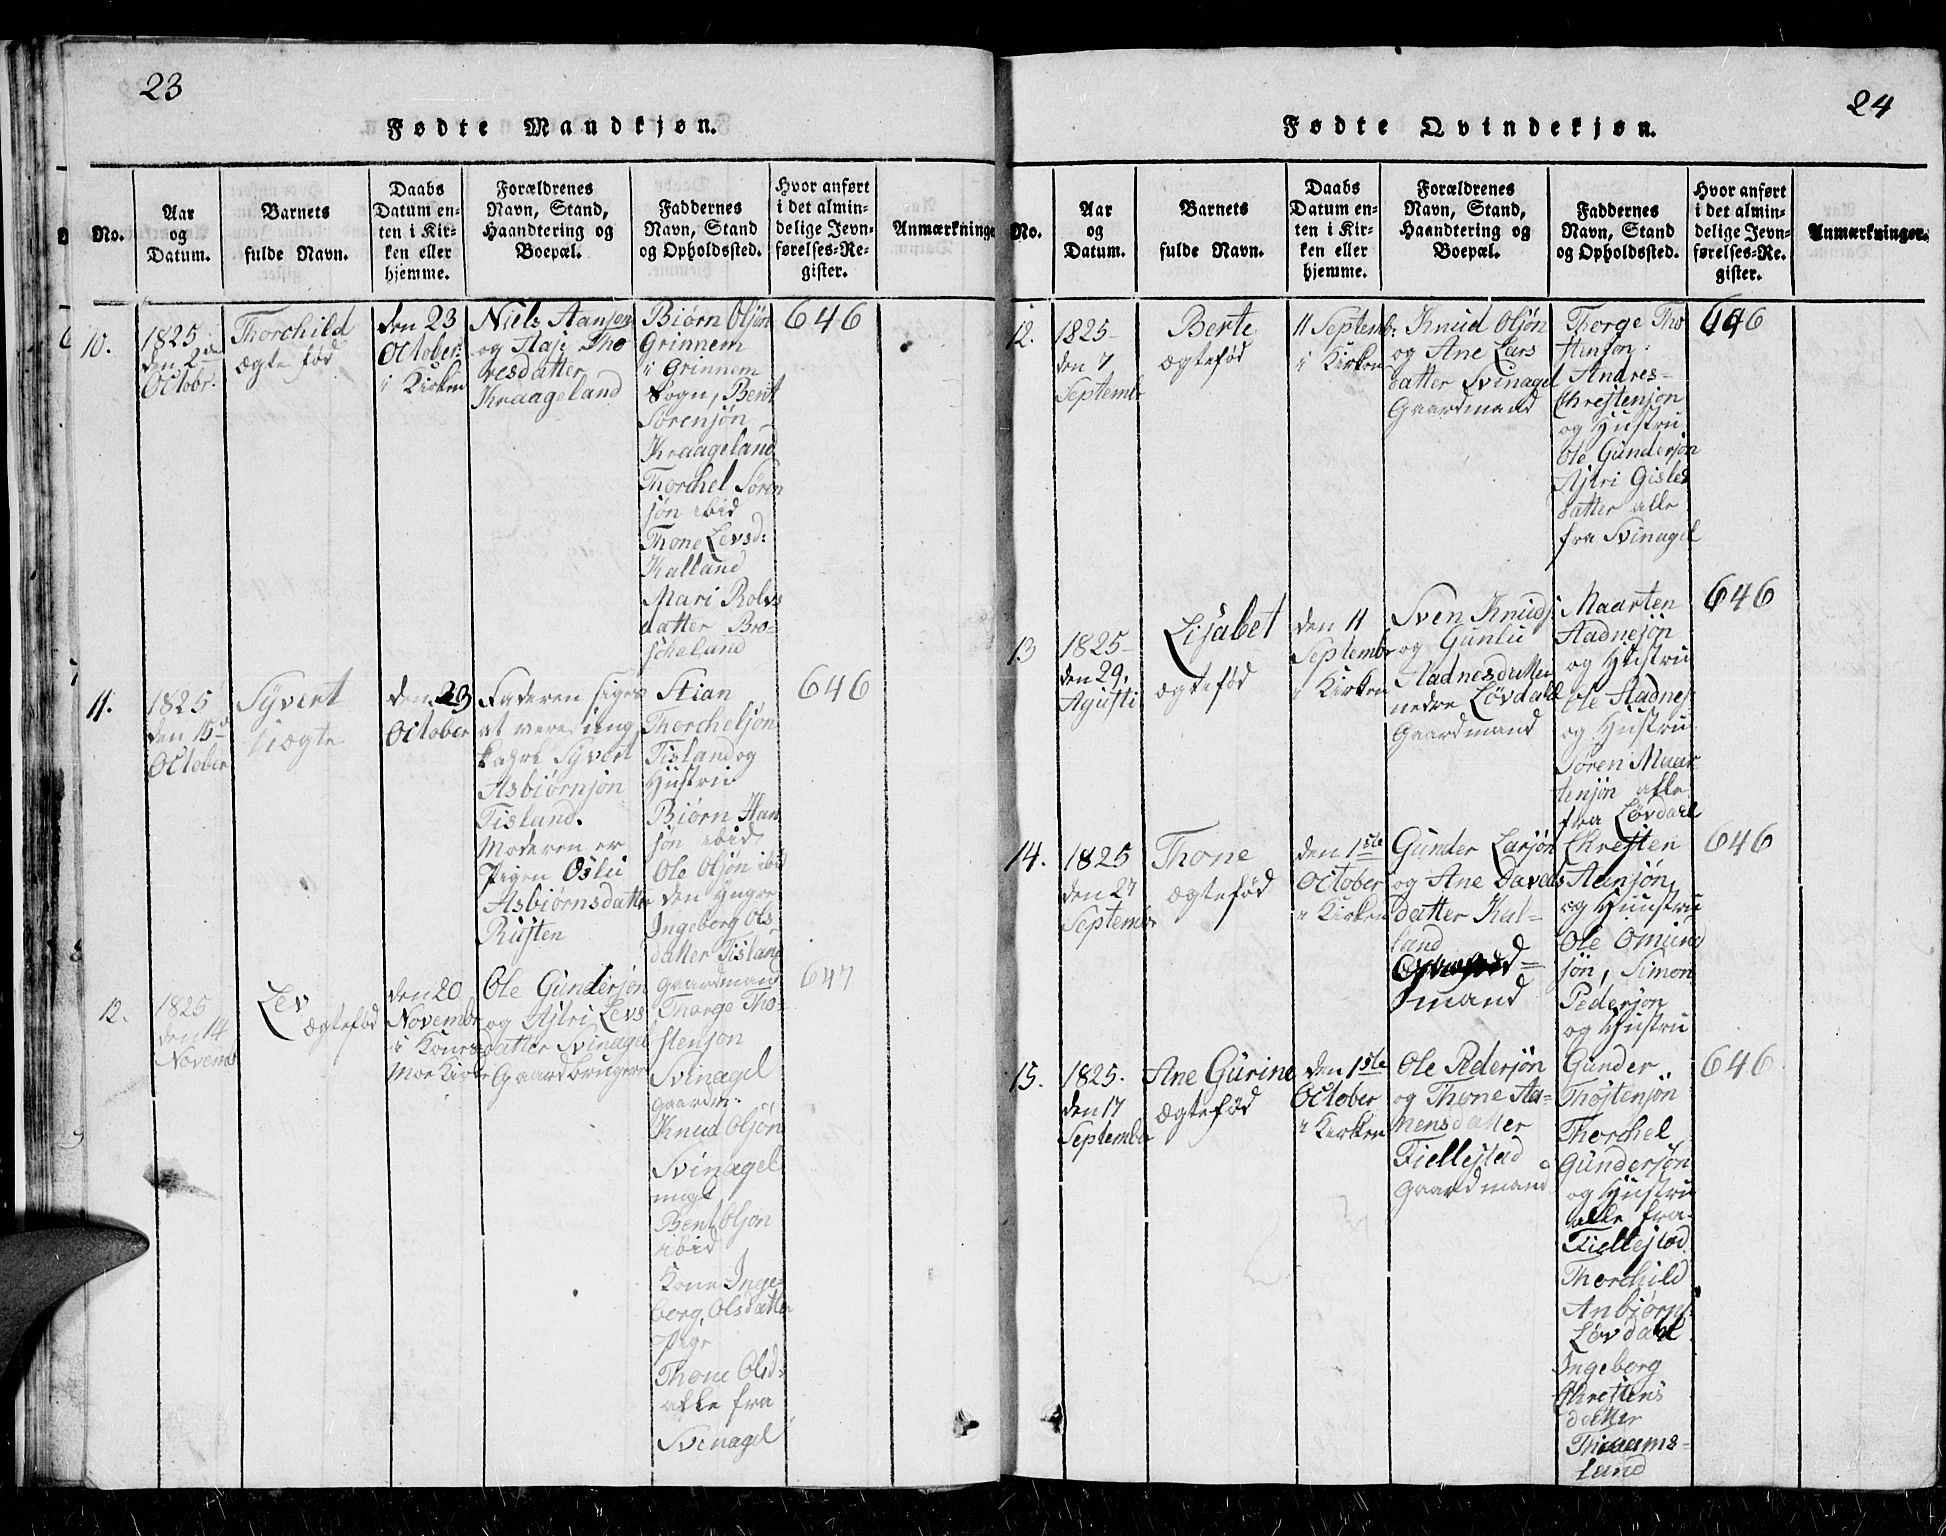 23
Fødte Mandkjøn.
No.
Aar
og
Datum.
Barnets
fulde Navn.
Daabs
Datum en-
ten i Kir-
ken eller
hjemme.
Forældrenes
Navn, Stand,
Haandtering og
Boepæl.
Faddernes
Navn, Stand
og Opholdssted.
Hvor anført
i det almin-
delige Jevn-
førelses-Re-
gister.
Anmærkninge
10.
1825
den 2den
Octobr.
Thorchild
ægte fød
den 23
October
i Kirken
Niels Aansen
og Aase Tho
resdatter
Kraageland
Biørn Olsøn
Grinnem
i Grinnem
Sogn, Bent
Sørensøn
Kraageland
Thorchel Søren
søn ibid
Thone Levsd:
Kalland
Mari Rolvs
datter Bro-
scheland
646
11.
1825
den 15d
October
Syvert
uægte
den 23
October
Faderen siges
at være ung
karl Syvert
Asbiørnsøn
Tisland.
Moderen er
Pigen Oslu
Asbiørnsdatter
Risten
Stian
Thorchelsøn
Tisland og
Hustru
Biørn Han
søn ibid
Ole Olsøn ibid
den yngre
Ingeborg Ols
datter Tisland
Gaardmand
646
12.
1825
den 14
Novemb
Lev
ægtefød
den 20
Novembr
i Kours-
moe Kirke
Ole Gundersøn
og Astri Levs
datter Svinagel
Gaardbruger
Thorge Tho-
stensøn
Svinagel
gaardm.
Knud Olsøn
Svinagel
ungk
Bent Olsøn
ibid
Kone Inge-
borg Olsdatter
Pige
Thone Olsd:
alle fra
Svinagel
647
24
Fødte Qvindekjøn.
No.
Aar
og
Datum.
Barnets
fulde Navn.
Daabs
Datum en-
ten i Kir-
ken eller
hjemme.
Forældrenes
Navn, Stand,
Haandtering og
Boepæl.
Faddernes
Navn, Stand
og Opholdssted.
Hvor anført
i det almin-
delige Jevn-
førelses-Re-
gister.
Anmærkninger.
12.
1825
den 7
Septembr
Berte
ægtefød
11 Septemb:
i Kirken
Knud Olsøn
og Ane Lars
datter Svinagel
Gaardmand
Thorge Tho
stensøn
Andres
Chrestensøn
og Hustru
Ole Gundersøn
Astri Gisles
datter alle
fra Svinagel
646
13
1825
den 29.
Agusti
Lisabet
ægtefød
den 11
Septembr
i Kirken
Sven Knuds
og Gunlu
Aadnesdatter
nedre Løvdahl
Gaardmand
Maarten
Aadnesøn
og Hustru
Ole Aadnes
og Hustru
Søren Maar
tensøn alle
fra Løvdahl
646
14.
1825
den 27
Septembr
Thone
ægtefød
den 1ste
October
i Kirken
Gunder Larsøn
og Ane Daveds
datter Kal-
land
mand
Chresten
Aansøn
og Huustru
Ole Omund
søn, Simon
Pedersøn
og Hustru
646
15.
1825.
den 17
September
Ane Gurine
ægtefød
den 1ste
October
i Kirken
Ole Pedersøn
og Thone Aa-
nensdatter
Fiellestad
Gaardmand
Gunder
Thostensøn
Thorchel
Gundersøn
og Hustru
alle fra
Fiellestad
Thorchild
Anbiørns
Løvdahl
Ingeborg
Chrestens
datter
Thraams-
land
646